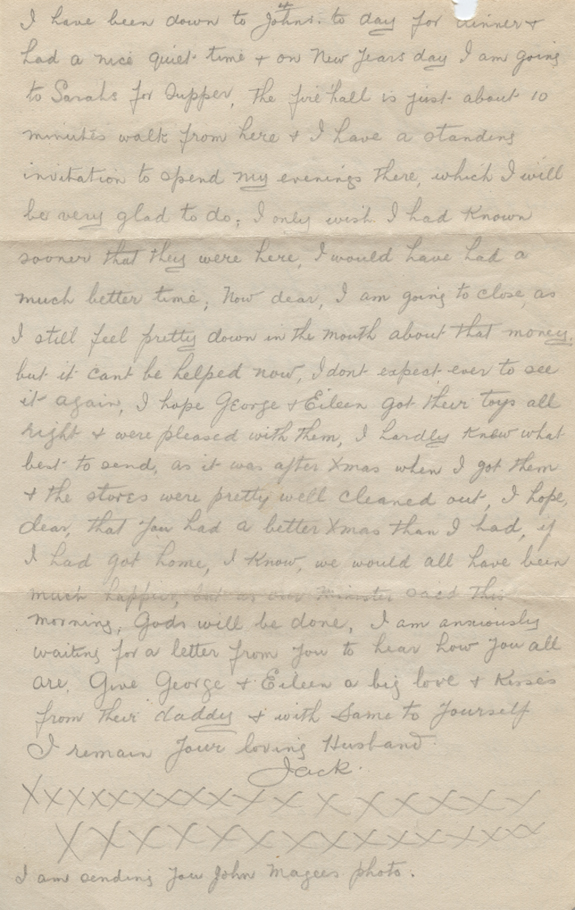 I have been down to Johns. to day for dinner +
had a nice quiet time + on New Years day I am going
to Sarahs for Supper, The fire hall is just about 10
minutes walk from here + I have a standing
invitation to spend my evenings there, which I will
be very glad to do; I only wish I had Known
sooner that they were here, I would have had a
much better time; Now dear, I am going to close, as
I still feel pretty down in the mouth about that money.
but it cant be helped now, I dont expect ever to see
it again, I hope George + Eileen got their toys all
right + were pleased with them, I hardley Know what
best to send, as it was after Xmas when I got them
+ the stores were pretty well cleaned out, I hope,
dear, that you had a better Xmas than I had, if
I had got home, I Know, we would all have been
much happier, but as our minister said this
morning, Gods will be done, I am anxiously
waiting for a letter from you to hear how you all
are. Give George + Eileen a big love + Kisses
from their daddy + with Same to Yourself
I remain Your loving Husband.
Jack.
XXXXXXXXXXXXXXXXXX
XXXXXXXXXXXXXXX
I am sending you John Magees photo.